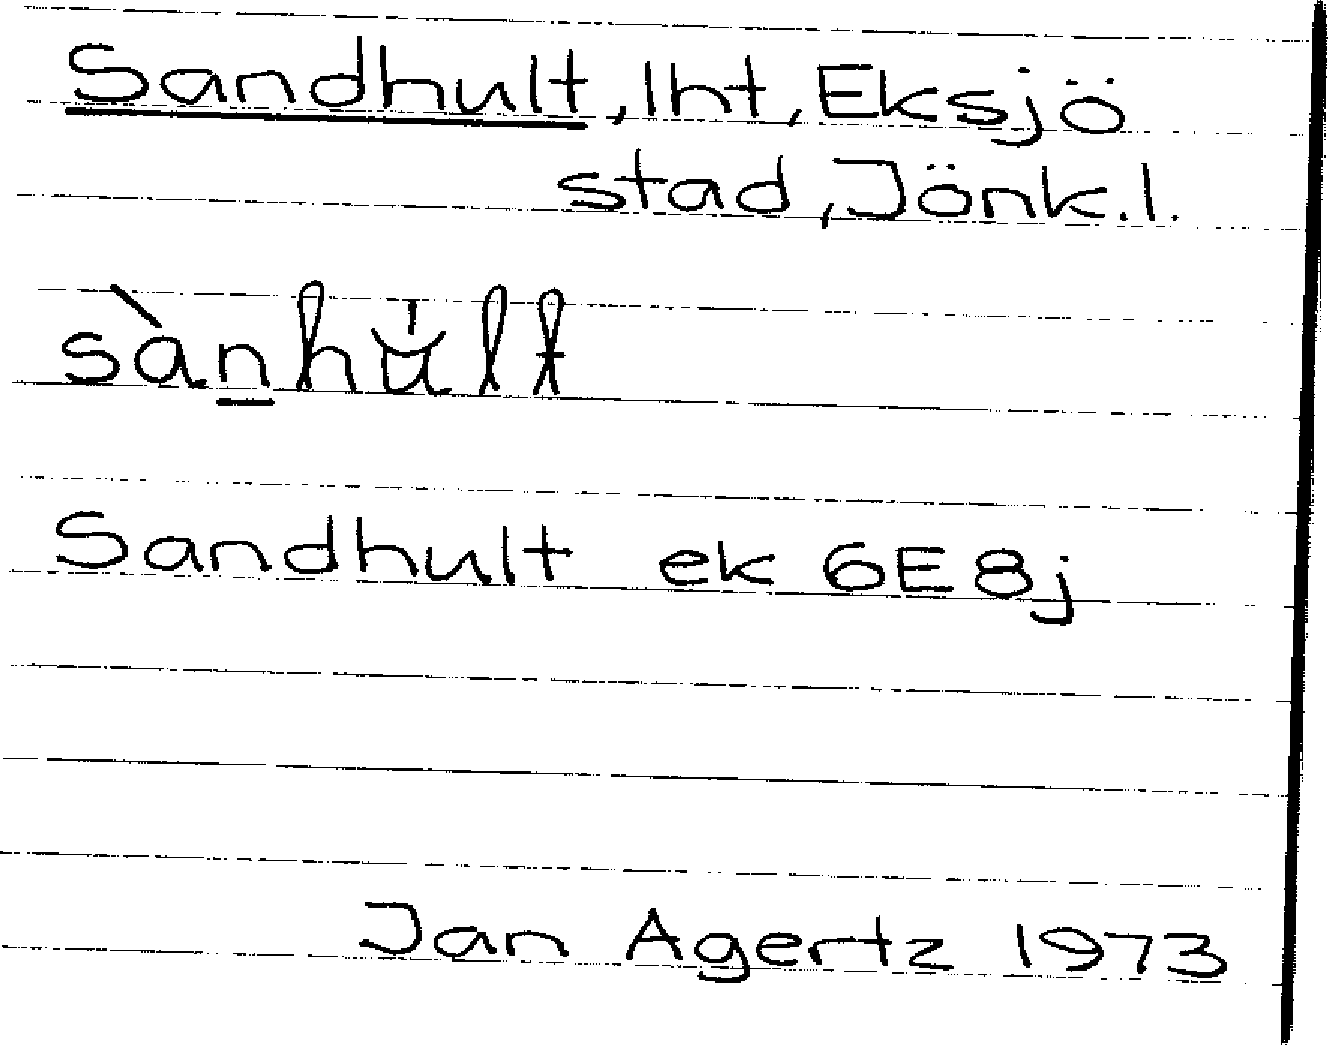 Sandhult, lht, Eksjö
stad, Jönk.l.
sànhŭlt
Sandhult ek 6E8j
Jan Agertz 1973